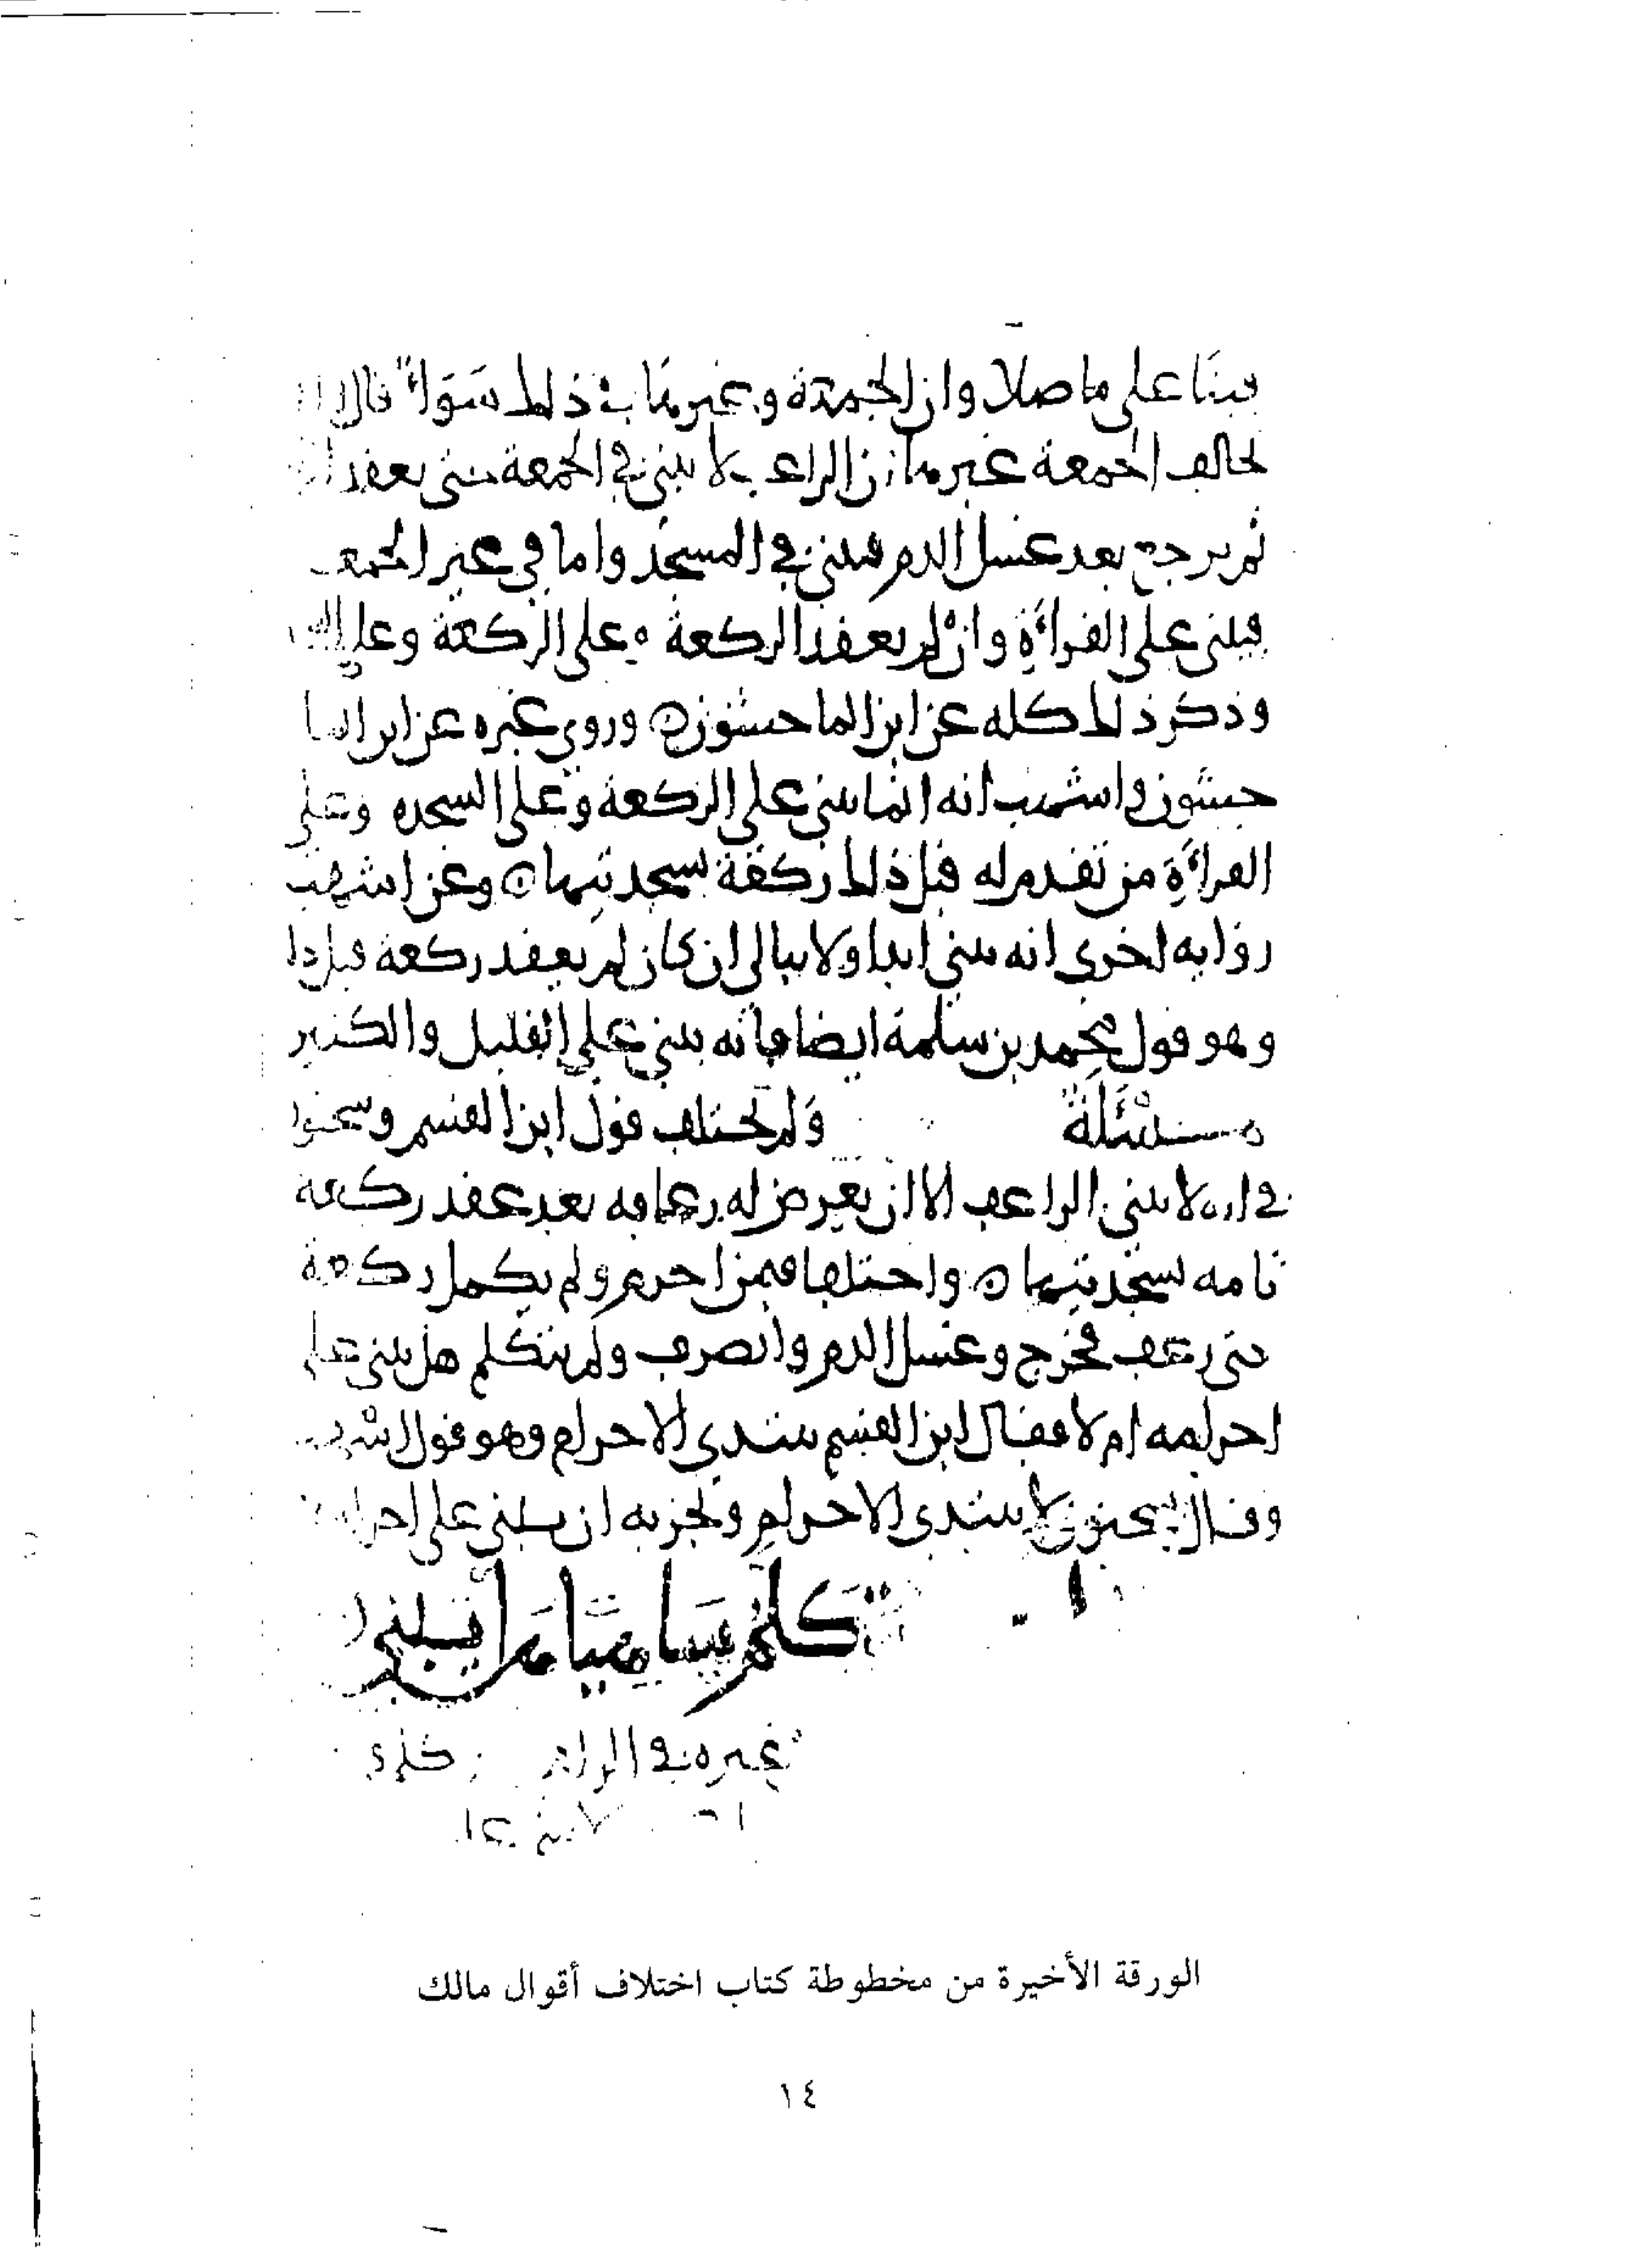 فبنا على ما صلا وان الجمعة وغيرها في ذلك سَوَاءً قال
تخالف الجمعة غيرها ان الراعف لا يبني في الجمعة حتى يعقد
ثم يرجع بعد غسل الدم فيبني في المسجد واما في غير الجمعة
فيبني على القراءَةِ وان لم يعقد الركعة وعلى الركعة وعلى
وذكر ذلك كله عن ابن الماجشون وروى غيره عن ابن الما
جشون واشهب انه انما يبني على الركعة وعلى السجده وعلى
القراءَةِ من تقدم له قبل ذلك ركعة بسجدتيها وعن اشهب
روايه اخرى انه يبني ابدا ولا يبالي ان كان لم يعقد ركعة قبل ذلك
وهو قول محمد بن سلمة ايضا فانه يبني على القليل والكثير
مسْئَلَةٌ وَلم تختلف قول ابن القسم وسحنون
في انه لا يبني الراعف الا ان يعرض له رعافه بعد عقد ركعة
تامه بسجدتيها واختلفا فيمن احرم ولم يكمل ركعة
حتى رعف فخرج وغسل الدم وانصرف ولم يتكلم هل يبني على
احرامه ام لا فقال ابن القسم يبتدى الاحرام وهو قول اشهب
وقال سحنون لا يبتدى الاحرام وتجزيه ان يبني على احرامه
غيره في
لا يبني
الورقة الأخيرة من مخطوطة كتاب اختلاف أقوال مالك
١٤